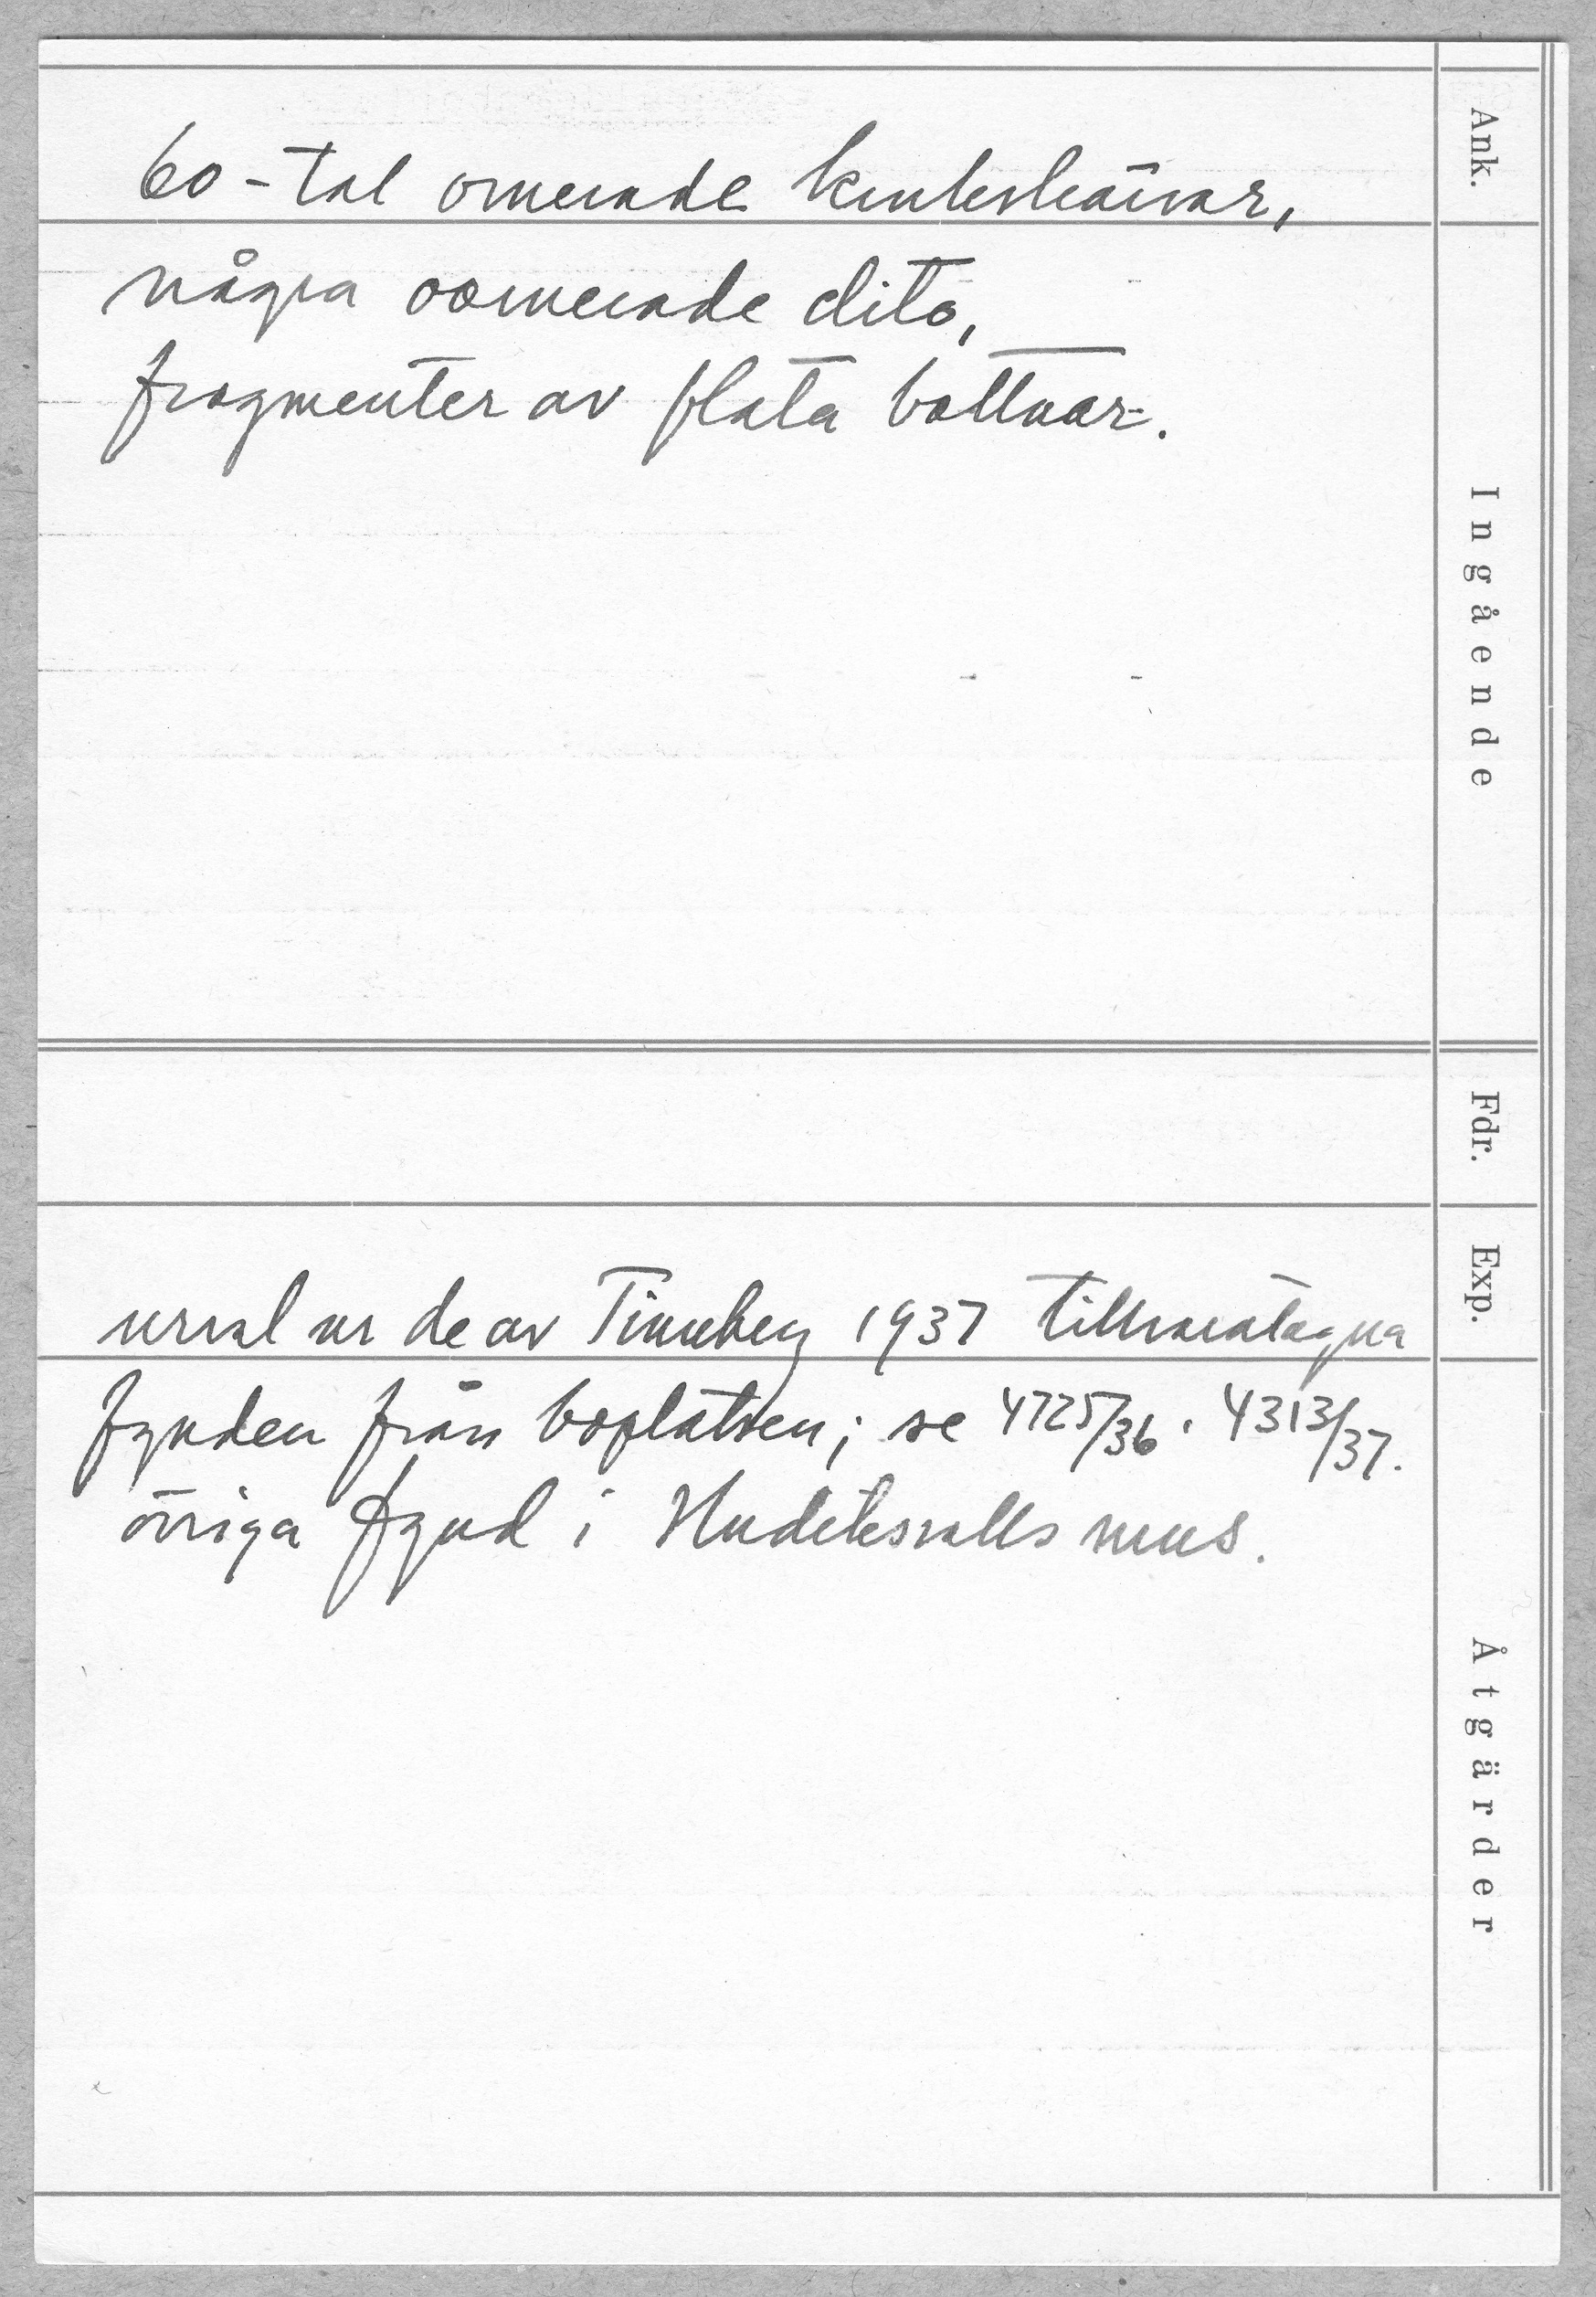 60-tal ornerade krukskärvar,
några oornerade dito,
fragmenter av flata bottnar.
urval ur de av Tinnberg 1937 tillvaratagna
fynden från boplatsen; se 4725/36. 4313/37.
övriga fynd i Hudiksvalls mus.
Ank.
Ingående
Fdr.
Exp.
Åtgärder